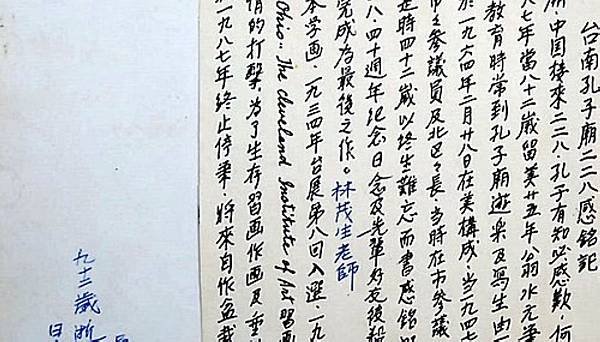 台南孔子廟二二八感銘記
廟·中国接來二二八·孔子有知必感歎·何
八七年當八十二歲留美廿五年公翁水元筆
教育時常到孔子廟遊樂及寫生由
於一九六四年二月廿八日在美構成·当一九四七
市參議員及北區區長·当時在市參議
是時四十二歲以終生難忘而書感銘
八·四十週年纪念日念及先輩好友後殺
完成為最後之作。林茂生老師.
本学画·一九三四年台展第八回入選·一九
Ohio·The Cleveland Institute of Art 習画
情的打擊·为了生存習画作画及
一九八七年終止停筆·將來自作盆栽
九十三歲